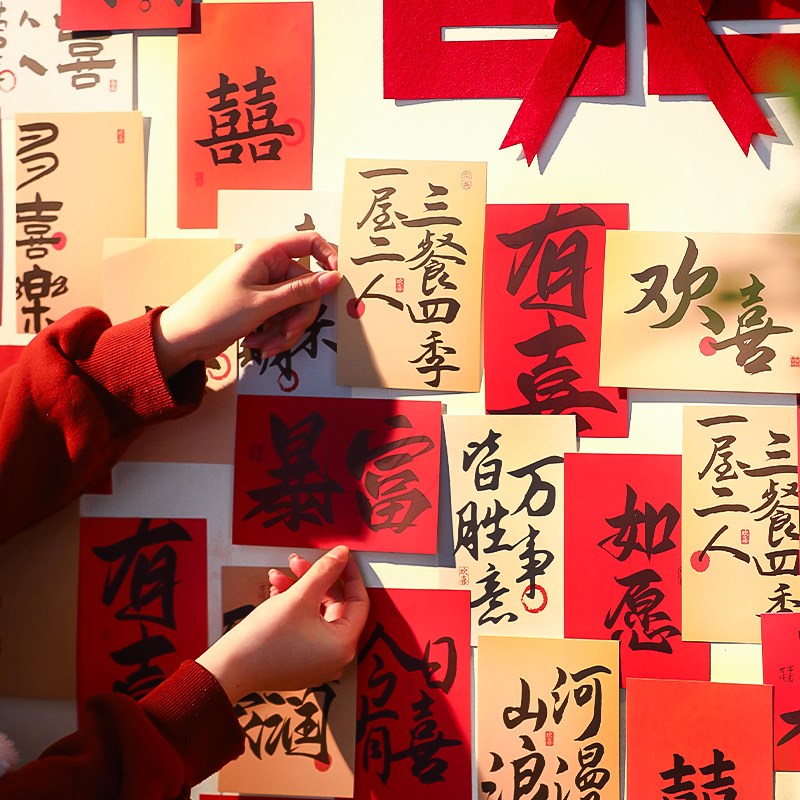 喜
囍
多喜樂
一屋二人
三餐四季
有喜
欢喜
暴富
万事
皆勝意
如愿
一屋二人
三餐四季
有喜
今日
有喜
河漫
山浪
囍